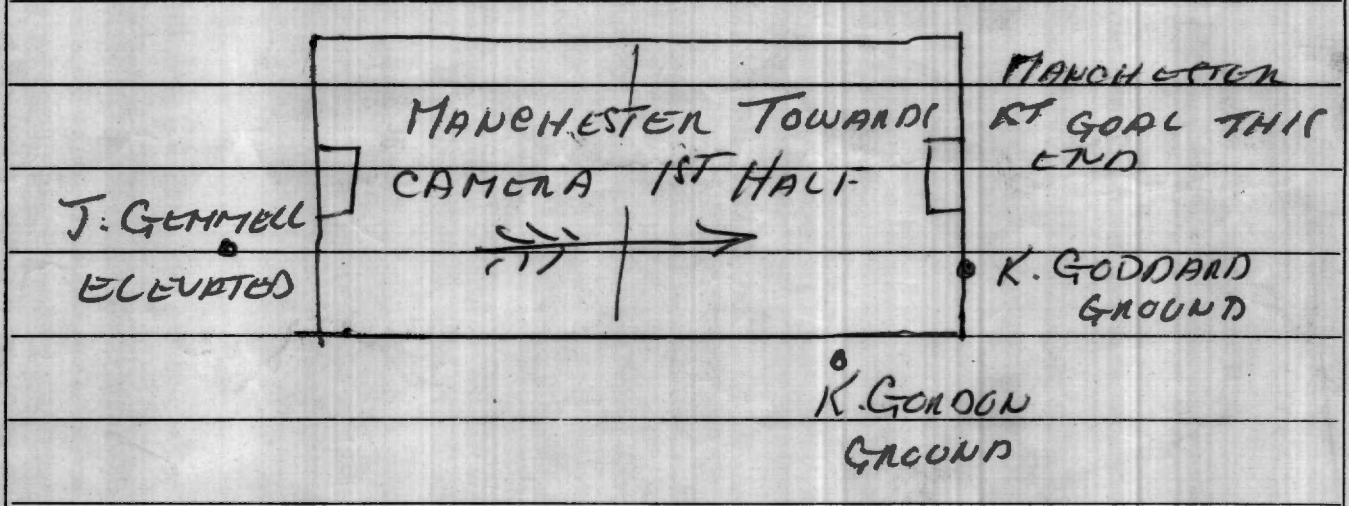 MANCHESTER TOWARDS
CAMERA 1ST HALF
MANCHESTER
1ST GOAL THIS
END
J. GEMMELL
ELEVATED
K. GODDARD
GROUND
K. GORDON
GROUND